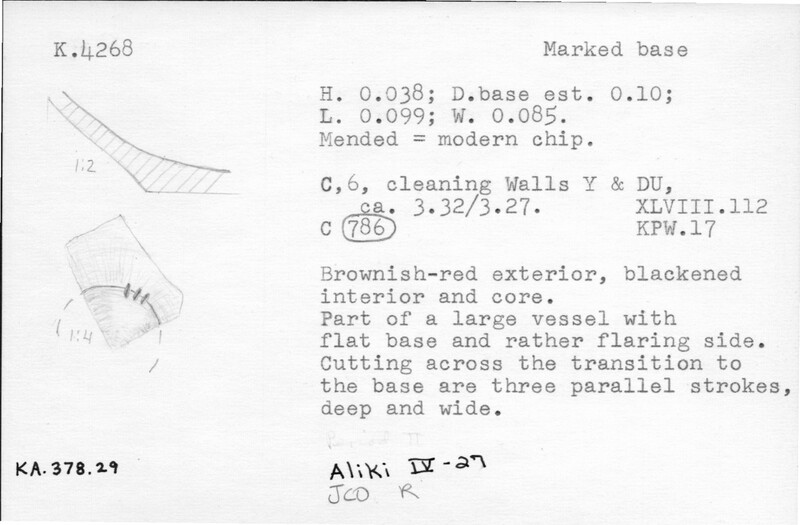 K.4268
Marked base
H. 0.038; D.base est. 0.10;
L. 0.099; W. 0.085.
Mended = modern chip.
1:2
C,6, cleaning Walls Y & DU,
ca. 3.32/3.27. XLVIII.112
C 786 KPW.17
Brownish-red exterior, blackened
interior and core.
Part of a large vessel with
flat base and rather flaring side.
Cutting across the transition to
the base are three parallel strokes,
deep and wide.
1:4
KA.378.29
Aliki IV-27
JCO R